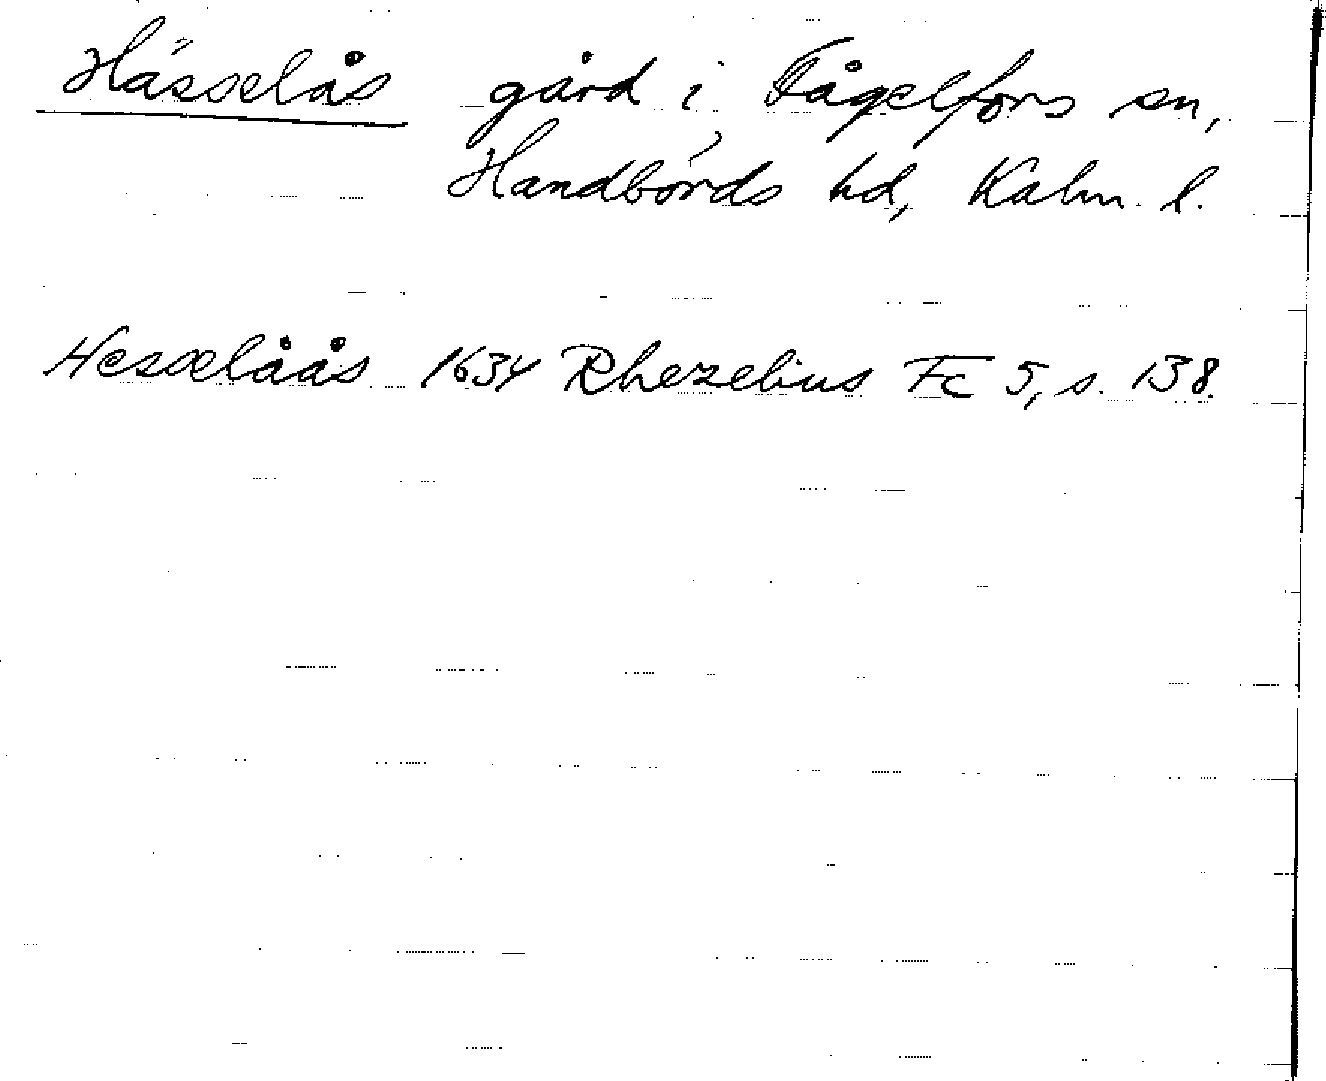 Hässelås gård i Fågelfors sn,
Handbörds hd, Kalm. l.
Hesselåås 1634 Rhezelius Fc 5, s. 138.